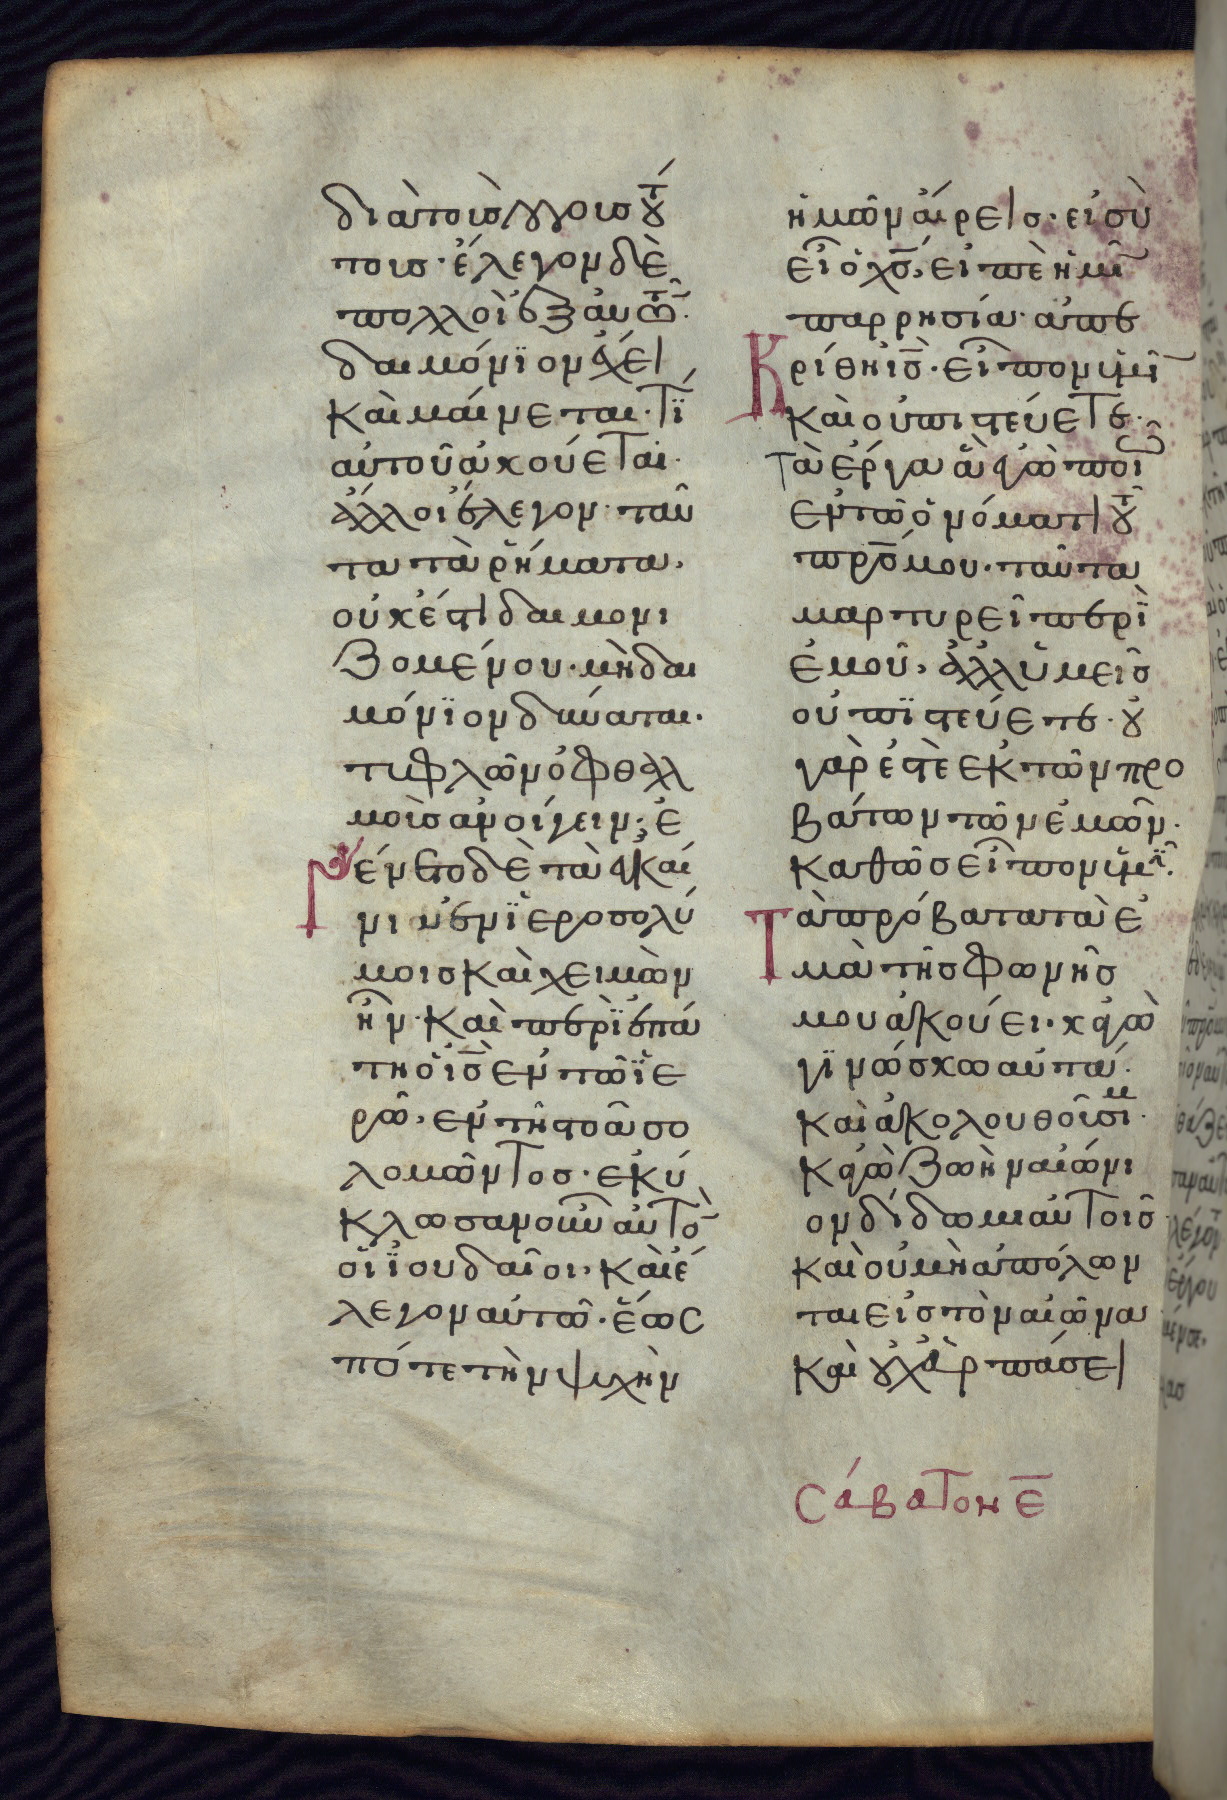 διὰ τοὺσ λόγουσ τού
τουσ· ἔλεγον δὲ
πολλοὶ ἐξ αὐτῶν·
δαιμόνϊον ἔχει
καὶ μαίνεται· τί
αὐτοῦ ἀκούεται·
ἄλλοι ἔλεγον· ταῦ
τα τὰ ῥήματα,
οὐκ ἔστι δαιμονι
ζομένου· μὴ δαι
μόνϊον δύναται·
τυφλῶν ὀφθαλ
μοὺσ ἀνοίγειν; Ἐ
γένετο δὲ τὰ ἐγκαί
νια ἐν ϊεροσολύ
μοισ καὶ χειμὼν
ἦν· καὶ περιεπά
τη ὁ ι̅σ̅ ἐν τῷ ϊε
ρῷ, ἐν τῇ στοᾷ σο
λομῶντοσ· ἐκύ
κλωσαν οὖν αὐτὸν
οἱ ϊουδαῖοι, καὶ ἔ
λεγον αὐτῷ· ἕωσ
πότε τὴν ψυχὴν
ἡμῶν αἴρεισ· εἰ σὺ
εἶ ὁ χ̅σ̅, εἰπὲ ἡμῖν
παρρησία· ἀπε
Κρίθη ι̅σ̅· εἶπον ὑμῖν
καὶ οὐ πιστεύετε·
τὰ ἔργα ἃ ἐγὼ ποιῶ
ἐν τῷ ὀνόματι τοῦ
π̅ρ̅σ̅ μου· ταῦτα
μαρτυρεῖ περὶ
ἐμοῦ, ἀλλ ὑμεῖσ
οὐ πϊστεύετε· οὐ
γὰρ ἐστὲ ἐκ τῶν προ
βάτων τῶν ἐμῶν·
καθὼσ εἶπον ὑμῖν·
Τὰ πρόβατα τὰ ἐ
μὰ τῆσ φωνῆσ
μου ἀκούει· κἀγὼ
γϊνώσκω αὐτά·
καὶ ἀκολουθοῦσι μοι·
κἀγὼ ζωὴν αἰώνι
ον δίδωμι αὐτοῖσ
καὶ οὐ μὴ ἀπόλων
ται εἰσ τὸν αἰῶνα
καὶ οὐχ ἁρπάσει
Σάβατον ε̅